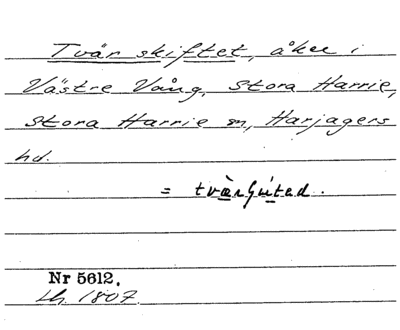 Tvär skiftet, åker i
Västre Vång, Stora Harrie,
Stora Harrie sn, Harjagers
hd.
=
Nr 5612.
Lh. 1807.